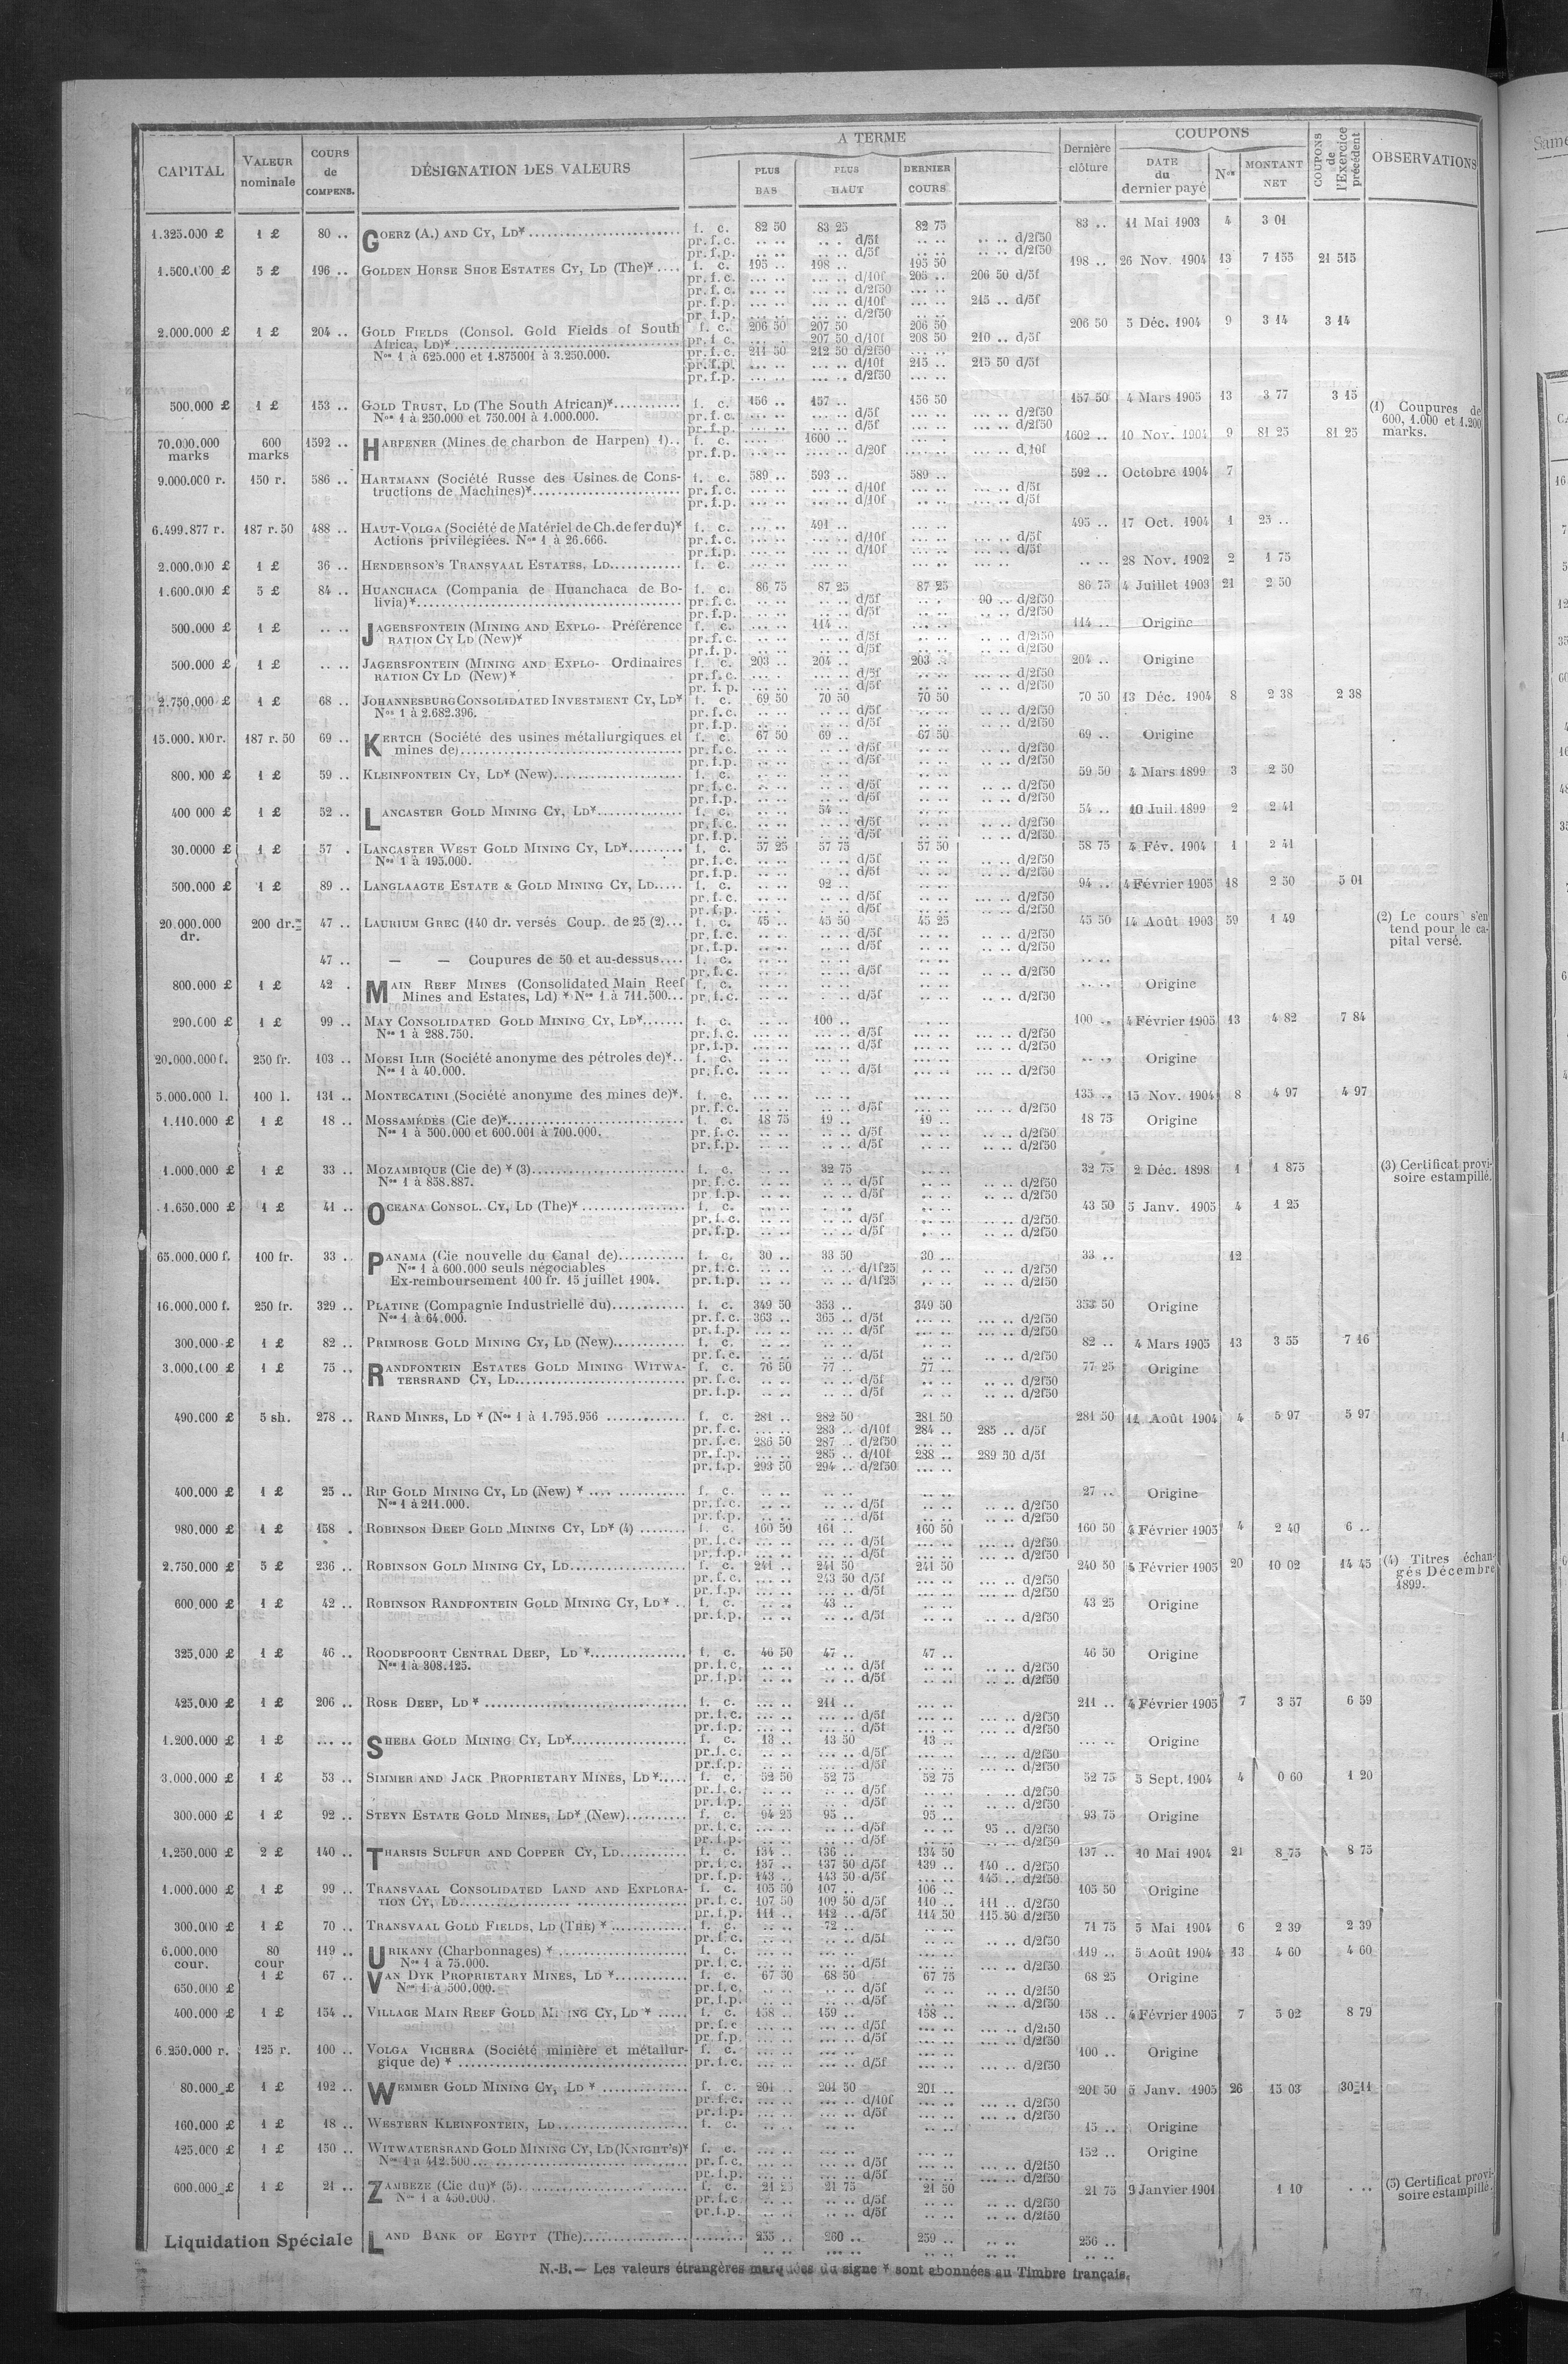 CAPITAL | VALEUR nominale | COURS de COMPENS. | DÉSIGNATION DES VALEURS | A TERME | Dernière clôture | COUPONS | COUPONS de l'Exercice précédent | OBSERVATIONS
PLUS BAS | PLUS HAUT | DERNIER COURS | DATE du dernier payé | Nos | MONTANT NET
1.325.000 £ 1 £ 80 .. GOERZ (A.) AND CY, LD* f. c. 82 50 83 25 82 75 83 .. 11 Mai 1903 4 3 01
pr. f. c. .. .. .. . d/5f .. .. .. .. d/2f50
pr. f. p. .. .. .. .. d/5f .. .. .. .. d/2f50
1.500.000 £ 5 £ 196 .. GOLDEN HORSE SHOE ESTATES CY, LD (The)* f. c. 195 .. 198 .. 195 50 198 .. 26 Nov. 1904 13 7 155 21 515
pr. f. c. d/10f 205 .. 206 50 d/5f
pr. f. c. d/2f50
pr. f. p. d/10f 215 .. d/5f
pr. f. p. d/2f50
2.000.000 £ 1 £ 204 .. GOLD FIELDS (Consol. Gold Fields of South f. c. 206 50 207 50 206 50 206 50 5 Déc. 1904 9 3 14 3 14
Africa, LD)* pr. f. c. 207 50 d/10f 208 50 210 .. d/5f
Nos 1 à 625.000 et 1.875001 à 3.250.000. pr. f. c. 211 50 212 50 d/2f50
pr. f. p. d/10f 215 .. 215 50 d/5f
pr. f. p. d/2f50
500.000 £ 1 £ 153 .. GOLD TRUST, LD (The South African)* f. c. 156 .. 157 .. 156 50 157 50 4 Mars 1905 13 3 77 3 15
Nos 1 à 250.000 et 750.001 à 1.000.000. pr. f. c. d/5f d/2f50
pr. f. p. d/5f d/2f50
(1) Coupures de
600, 1.000 et 1.200
marks.
70.000.000 marks 600 marks 1592 .. HARPENER (Mines de charbon de Harpen) 1).. f. c. 1600 .. 1602 .. 10 Nov. 1904 9 81 25 81 25
pr. f. p. d/20f d,10f
9.000.000 r. 150 r. 586 .. HARTMANN (Société Russe des Usines de Cons- f. c. 589 .. 593 .. 589 .. 592 .. Octobre 1904 7
tructions de Machines)* pr. f. c. d/10f d/5f
pr. f. p. d/10f d/5f
6.499.877 r. 187 r. 50 488 .. HAUT-VOLGA (Société de Matériel de Ch. de fer du)* f. c. 491 .. 495 .. 17 Oct. 1904 1 25 ..
Actions privilégiées. Nos 1 à 26.666. pr. f. c. d/10f d/5f
pr. f. p. d/10f d/5f
2.000.000 £ 1 £ 36 .. HENDERSON'S TRANSVAAL ESTATES, LD f. c. .. .. 28 Nov. 1902 2 1 75
1.600.000 £ 5 £ 84 .. HUANCHACA (Compania de Huanchaca de Bo- f. c. 86 75 87 25 87 25 86 75 4 Juillet 1903 21 2 50
livia)* pr. f. c. d/5f 90 .. d/2f50
pr. f. p. d/5f d/2f50
500.000 £ 1 £ .. .. JAGERSFONTEIN (MINING AND EXPLO- Préférence f. c. 114 .. 114 .. Origine
RATION CY LD (New)* pr. f. c. d/5f d/2f50
pr. f. p. d/5f d/2f50
500.000 £ 1 £ .. .. JAGERSFONTEIN (MINING AND EXPLO- Ordinaires f. c. 203 .. 204 .. 203 .. 204 .. Origine
RATION CY LD (New)* pr. f. c. d/5f d/2f50
pr. f. p. d/5f d/2f50
2.750.000 £ 1 £ 68 .. JOHANNESBURG CONSOLIDATED INVESTMENT CY, LD* f. c. 69 50 70 50 70 50 70 50 13 Déc. 1904 8 2 38 2 38
Nos 1 à 2.682.396. pr. f. c. d/5f d/2f50
pr. f. p. d/5f d/2f50
15.000.000 r. 187 r. 50 69 .. KERTCH (Société des usines métallurgiques et f. c. 67 50 69 .. 67 50 69 .. Origine
mines de) pr. f. c. d/5f d/2f50
pr. f. p. d/5f d/2f50
800.000 £ 1 £ 59 .. KLEINFONTEIN CY, LD* (New) f. c. 59 50 4 Mars 1899 3 2 50
pr. f. c. d/5f d/2f50
pr. f. p. d/5f d/2f50
400 000 £ 1 £ 52 .. LANCASTER GOLD MINING CY, LD* f. c. 54 .. 54 .. 10 Juil. 1899 2 2 41
pr. f. c. d/5f d/2f50
pr. f. p. d/5f d/2f50
30.0000 £ 1 £ 57 . LANCASTER WEST GOLD MINING CY, LD* f. c. 57 25 57 75 57 50 58 75 4 Fév. 1904 1 2 41
Nos 1 à 195.000. pr. f. c. d/5f d/2f50
pr. f. p. d/5f d/2f50
500.000 £ 1 £ 89 .. LANGLAAGTE ESTATE & GOLD MINING CY, LD f. c. 92 .. 94 .. 4 Février 1905 18 2 50 5 01
pr. f. c. d/5f d/2f50
pr. f. p. d/5f d/2f50
20.000.000 dr. 200 dr. 47 .. LAURIUM GREC (140 dr. versés Coup. de 25 (2) f. c. 45 .. 45 50 45 25 45 50 14 Août 1903 59 1 49
pr. f. c. d/5f d/2f50
pr. f. p. d/5f d/2f50
(2) Le cours s'en
tend pour le ca-
pital versé.
47 .. — — Coupures de 50 et au-dessus f. c. .. ..
pr. f. c. d/5f d/2f50
800.000 £ 1 £ 42 . MAIN REEF MINES (Consolidated Main Reef f. c. .. .. Origine
Mines and Estates, Ld) * Nos 1 à 711.500 pr. f. c. d/5f d/2f50
290.000 £ 1 £ 99 .. MAY CONSOLIDATED GOLD MINING CY, LD* f. c. 100 .. 100 .. 4 Février 1905 13 4 82 7 84
Nos 1 à 288.750. pr. f. c. d/5f d/2f50
pr. f. p. d/5f d/2f50
20.000.000 f. 250 fr. 103 .. MOESI ILIR (Société anonyme des pétroles de)* f. c. .. .. Origine
Nos 1 à 40.000. pr. f. c. d/5f d/2f50
5.000.000 l. 100 l. 131 .. MONTECATINI (Société anonyme des mines de)* f. c. 135 .. 15 Nov. 1904 8 4 97 4 97
pr. f. c. d/5f d/2f50
1.110.000 £ 1 £ 18 .. MOSSAMÉDÈS (Cie de)* f. c. 18 75 19 .. 19 .. 18 75 Origine
Nos 1 à 500.000 et 600.001 à 700.000. pr. f. c. d/5f d/2f50
pr. f. p. d/5f d/2f50
1.000.000 £ 1 £ 33 .. MOZAMBIQUE (Cie de) * (3) f. c. 32 75 32 75 2 Déc. 1898 1 1 875
Nos 1 à 858.887. pr. f. c. d/5f d/2f50
pr. f. p. d/5f d/2f50
(3) Certificat provi-
soire estampillé.
1.650.000 £ 1 £ 41 .. OCEANA CONSOL. CY, LD (The)* f. c. 43 50 5 Janv. 1905 4 1 25
pr. f. c. d/5f d/2f50
pr. f. p. d/5f d/2f50
65.000.000 f. 100 fr. 33 .. PANAMA (Cie nouvelle du Canal de) f. c. 30 .. 33 50 30 .. 33 .. 12
Nos 1 à 600.000 seuls négociables pr. f. c. d/1f25 d/2f50
Ex-remboursement 100 fr. 15 juillet 1904. pr. f. p. d/1f25 d/2f50
16.000.000 f. 250 fr. 329 .. PLATINE (Compagnie Industrielle du) f. c. 349 50 353 .. 349 50 353 50 Origine
Nos 1 à 64.000. pr. f. c. 363 .. 365 .. d/5f d/2f50
pr. f. p. d/5f d/2f50
300.000 £ 1 £ 82 .. PRIMROSE GOLD MINING CY, LD (New) f. c. 82 .. 4 Mars 1905 13 3 55 7 16
pr. f. c. d/5f d/2f50
3.000.000 £ 1 £ 75 .. RANDFONTEIN ESTATES GOLD MINING WITWA- f. c. 76 50 77 .. 77 .. 77 25 Origine
TERSRAND CY, LD pr. f. c. d/5f d/2f50
pr. f. p. d/5f d/2f50
490.000 £ 5 sh. 278 .. RAND MINES, LD * (Nos 1 à 1.795.956 f. c. 281 .. 282 50 281 50 281 50 11 Août 1904 4 5 97 5 97
pr. f. c. 283 .. d/10f 284 .. 285 .. d/5f
pr. f. c. 286 50 287 .. d/2f50
pr. f. p. 285 .. d/10f 288 .. 289 50 d/5f
pr. f. p. 293 50 294 .. d/2f50
400.000 £ 1 £ 25 .. RIP GOLD MINING CY, LD (New) * f. c. 27 .. Origine
Nos 1 à 211.000. pr. f. c. d/5f d/2f50
pr. f. p. d/5f d/2f50
980.000 £ 1 £ 158 . ROBINSON DEEP GOLD MINING CY, LD* (4) f. c. 160 50 161 .. 160 50 160 50 4 Février 1905 4 2 40 6 ..
pr. f. c. d/5f d/2f50
pr. f. p. d/5f d/2f50
2.750.000 £ 5 £ 236 .. ROBINSON GOLD MINING CY, LD f. c. 241 .. 241 50 241 50 240 50 4 Février 1905 20 10 02 14 45
pr. f. c. 243 50 d/5f d/2f50
pr. f. p. d/5f d/2f50
(4) Titres échan-
gés Décembre
1899.
600.000 £ 1 £ 42 .. ROBINSON RANDFONTEIN GOLD MINING CY, LD* f. c. 43 .. 43 25 Origine
pr. f. p. d/5f d/2f50
325.000 £ 1 £ 46 .. ROODEPOORT CENTRAL DEEP, LD * f. c. 46 50 47 .. 47 .. 46 50 Origine
Nos 1 à 308.125. pr. f. c. d/5f d/2f50
pr. f. p. d/5f d/2f50
425.000 £ 1 £ 206 .. ROSE DEEP, LD * f. c. 211 .. 211 .. 4 Février 1905 7 3 57 6 59
pr. f. c. d/5f d/2f50
pr. f. p. d/5f d/2f50
1.200.000 £ 1 £ .. .. SHEBA GOLD MINING CY, LD* f. c. 13 .. 13 50 13 .. .. .. Origine
pr. f. c. d/5f d/2f50
pr. f. p. d/5f d/2f50
3.000.000 £ 1 £ 53 .. SIMMER AND JACK PROPRIETARY MINES, LD* f. c. 52 50 52 75 52 75 52 75 5 Sept. 1904 4 0 60 1 20
pr. f. c. d/5f d/2f50
pr. f. p. d/5f d/2f50
300.000 £ 1 £ 92 .. STEYN ESTATE GOLD MINES, LD* (New) f. c. 94 25 95 .. 95 .. 93 75 Origine
pr. f. c. d/5f 95 .. d/2f50
pr. f. p. d/5f d/2f50
1.250.000 £ 2 £ 140 .. THARSIS SULFUR AND COPPER CY, LD f. c. 134 .. 136 .. 134 50 137 .. 10 Mai 1904 21 8 75 8 75
pr. f. c. 137 .. 137 50 d/5f 139 .. 140 .. d/2f50
pr. f. p. 143 .. 143 50 d/5f 145 .. d/2f50
1.000.000 £ 1 £ 99 .. TRANSVAAL CONSOLIDATED LAND AND EXPLORA- f. c. 105 50 107 .. 106 .. 105 50 Origine
TION CY, LD pr. f. c. 107 50 109 50 d/5f 110 .. 111 .. d/2f50
pr. f. p. 111 .. 112 .. d/5f 114 50 115 50 d/2f50
300.000 £ 1 £ 70 .. TRANSVAAL GOLD FIELDS, LD (THE) * f. c. 72 .. 71 75 5 Mai 1904 6 2 39 2 39
pr. f. c. d/5f d/2f50
6.000.000 cour. 80 cour 119 .. URIKANY (Charbonnages) * f. c. 119 .. 5 Août 1904 13 4 60 4 60
Nos 1 à 75.000. pr. f. c. d/5f d/2f50
650.000 £ 1 £ 67 .. VAN DYK PROPRIETARY MINES, LD * f. c. 67 50 68 50 67 75 68 25 Origine
Nos 1 à 500.000. pr. f. c. d/5f d/2f50
pr. f. p. d/5f d/2f50
400.000 £ 1 £ 154 .. VILLAGE MAIN REEF GOLD MINING CY, LD * f. c. 158 .. 159 .. 158 .. 158 .. 4 Février 1905 7 5 02 8 79
pr. f. c d/5f d/2f50
pr. f. p. d/5f d/2f50
6.250.000 r. 125 r. 100 .. VOLGA VICHERA (Société minière et métallur- f. c. 100 .. Origine
gique de) * pr. f. c. d/5f d/2f50
80.000 £ 1 £ 192 .. WEMMER GOLD MINING CY, LD * f. c. 201 .. 201 50 201 .. 201 50 5 Janv. 1905 26 15 03 30 11
pr. f. c. d/10f d/2f50
pr. f. p. d/5f d/2f50
160.000 £ 1 £ 18 .. WESTERN KLEINFONTEIN, LD f. c. 15 .. Origine
425.000 £ 1 £ 150 .. WITWATERSRAND GOLD MINING CY, LD (KNIGHT'S)* f. c. 152 .. Origine
Nos 1 à 412.500 pr. f. c. d/5f d/2f50
pr. f. p. d/5f d/2f50
600.000 £ 1 £ 21 .. ZAMBÈZE (Cie du)* (5) f. c. 21 25 21 75 21 50 21 75 9 Janvier 1901 1 10 . ..
Nos 1 à 450.000. pr. f. c d/5f d/2f50
pr. f. p. d/5f d/2f50
(5) Certificat provi-
soire estampillé.
Liquidation Spéciale LAND BANK OF EGYPT (The) 255 .. 260 .. 259 .. 256 ..
N.-B. — Les valeurs étrangères marquées du signe * sont abonnées au Timbre français.